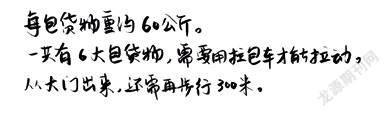 每包货物重约60公斤。
一共有6大包货物，需要用拉包车才能拉动。
从大门出来，还需再步行300米。
龙源期刊网